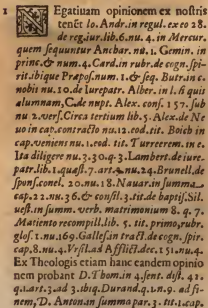 NEgatiuam opinionem ex nostris
tenēt lo. Andr. in regul. ex eo 28.
de reg. iur. lib. 6. nu. 4. in Mercur.
quem sequuntur Anchar. nū. 1. Gemin. in
princ. & num. 4. Card. in rubr. de cogn. spi-
rit. ibique Præpos. num. 1. & seq. Butr. in c.
nobit nu. 10. de Iurepatr. Alber. in l. si quis
alumnam, C. de nupt. Alex. cons. 157. sub
nu. 2. vers. Circa tertium lib. 5. Alex. de Ne
uo in cap. contracto nu. 12. eod. tit. Boich in
cap. veniens nu. 1. eod. tit. Turrecrem. in c.
Ita diligere nu. 3. 30. q. 3. Lambert. de iure-
patr. lib. 1. quæst. 7. art. nu. 24. Brunell. de
spons. concl. 20. nu. 18. Nauar. in summa
cap. 22. nu. 36. & consil. 3. tit. de baptis. Sil.
uest. in summ. verb. matrimonium 8. q. 7.
Matienzo recompil. lib. 5. tit. primo, rubr.
glos. 1. nu. 169. Galles. in tract. de cogn. spir.
cap. 8. nu. 4. Vrsil. ad Afflict. dec. 151. nu. 4.
Ex Theologis etiam hanc eandem opinio
nem probant D. Thom. in 4. sent. dist. 42.
q. 1. art. 3. ad 3. ibiq. Durand. q. 1. n. 9. ad fi-
nem, D. Anton. in summa par. 3. tit. 1. cap.